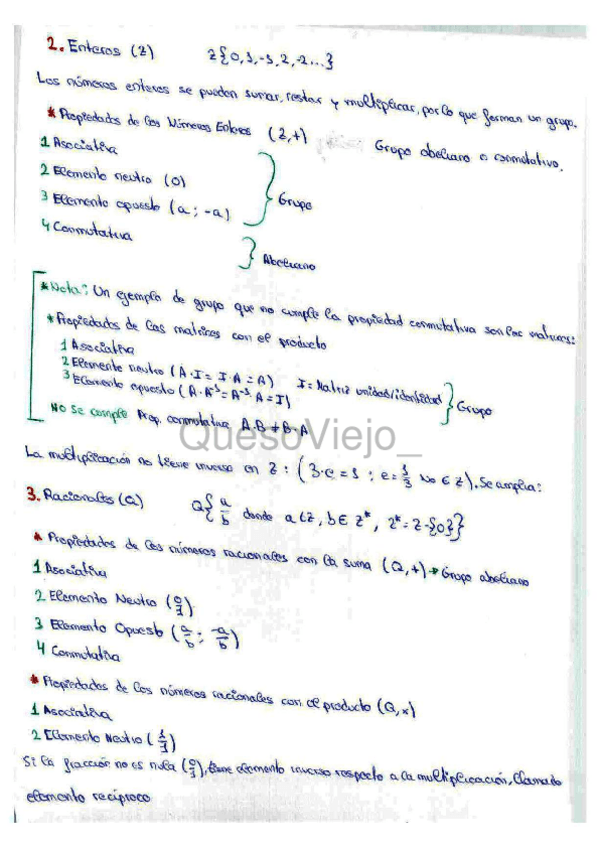 2. Enteros (Z) Z{0,1,-1,2,-2...}
Los números enteros se pueden sumar, restar y multiplicar, por lo que forman un grupo.
* Propiedades de los Números Enteros (Z,+) Grupo abeliano o conmutativo.
1 Asociativa
2 Elemento neutro (0)
3 Elemento opuesto (a ; -a) } Grupo
4 Conmutativa } Abeliano
* Nota: Un ejemplo de grupo que no cumple la propiedad conmutativa son las matrices:
* Propiedades de las matrices con el producto
1 Asociativa
2 Elemento neutro (A·I = I·A = A) I = Matriz unidad/identidad
3 Elemento opuesto (A·A⁻¹ = A⁻¹·A = I) } Grupo
No se cumple Prop. conmutativa A·B ≠ B·A
QuesoViejo_
La multiplicación no tiene inverso en Z : (3·e = 1 ; e = 1/3 No ∈ Z). Se amplia:
3. Racionales (Q) Q{a/b donde a ∈ Z, b ∈ Z*, Z* = Z-{0}}
* Propiedades de los números racionales con la suma (Q,+) → Grupo abeliano
1 Asociativa
2 Elemento Neutro (0/1)
3 Elemento Opuesto (a/b ; -a/b)
4 Conmutativa
* Propiedades de los números racionales con el producto (Q,x)
1 Asociativa
2 Elemento Neutro (1/1)
Si la fracción no es nula (0/1), tiene elemento inverso respecto a la multiplicación, llamado
elemento recíproco